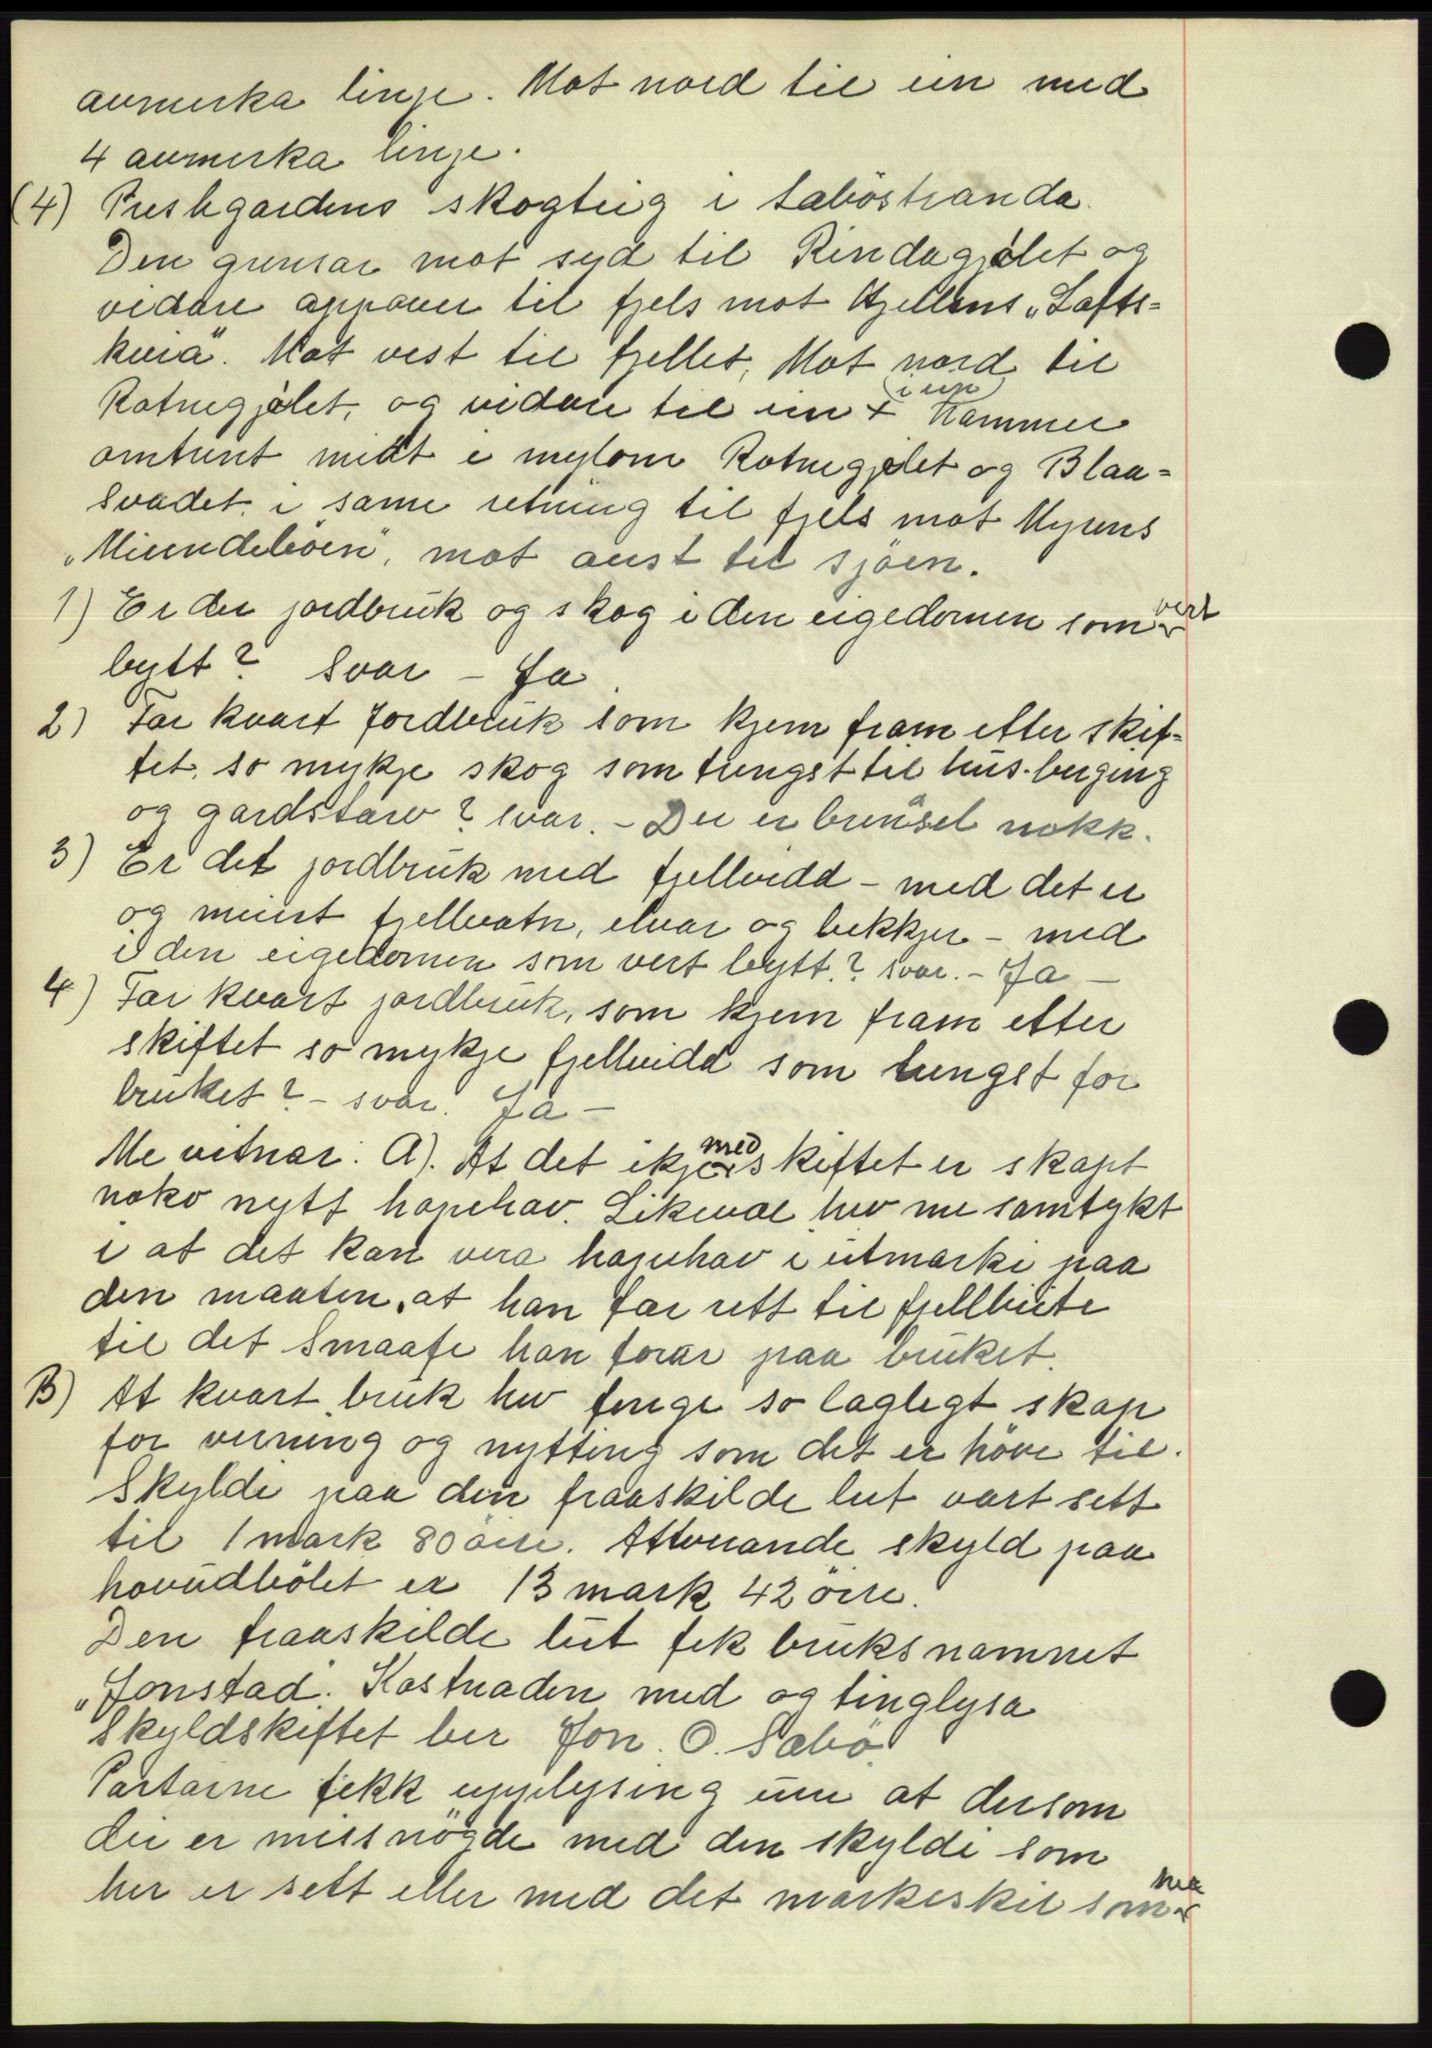 avmerka linje. Mot nord til ein med
4 avmerka linje.
(4) Prestegardens skogteig i Sæböstranda.
Den grensar mot syd til Rindagjølet og
vidare oppover til fjels mot Hjellens „Lofts-
kvia". Mot vest til fjellet, Mot nord til
Rotnegjølet, og vidare til ein + i ein hammer
omtrent midt i mylom Rotnegjølet og Blaa-
svadet, i same retning til fjels mot Myrens
„Miundeböen", mot aust til sjöen.
1) Er der jordbruk og skog i den eigedomen som vert
bytt? Svar – Ja.
2) Far kvart jordbruk som kjem fram etter skif-
tet, so mykje skog som tungst til hus-berging
og gardstarv? svar. – Der er brensel nokk.
3) Er det jordbruk med fjellvidd – med det er
og meint fjellvatn, elvar og bekkjer – med
i den eigedomen som vert bytt? svar. – Ja –
4) Far kvart jordbruk, som kjem fram etter
skiftet so mykje fjellvidd som tungst for
bruket? – svar. Ja –
Me vitnar: A). At det ikje med skiftet er skapt
noko nytt hopehav. Likevæl hev me samtykt
i at det kan vera hopehav i utmarki paa
den maaten, at han fær rett til fjellbeite
til det smaafe han forar paa bruket.
B) At kvart bruk hev fenge so laglegt skap
for verning og nytting som det er höve til.
Skyldi paa den fraaskilde lut vart sett
til 1 mark 80 öire. Attverande skyld paa
hovudbölet er 13 mark 42 öire.
Den fraaskilde lut fek bruksnamnet
„Jonstad". Kostnaden med og tinglysa
skyldskiftet ber Jon. O. Sæbö.
Partarne fekk upplysing um at dersom
dei er missnögde med den skyldi som
her er sett eller med det markeskil som me